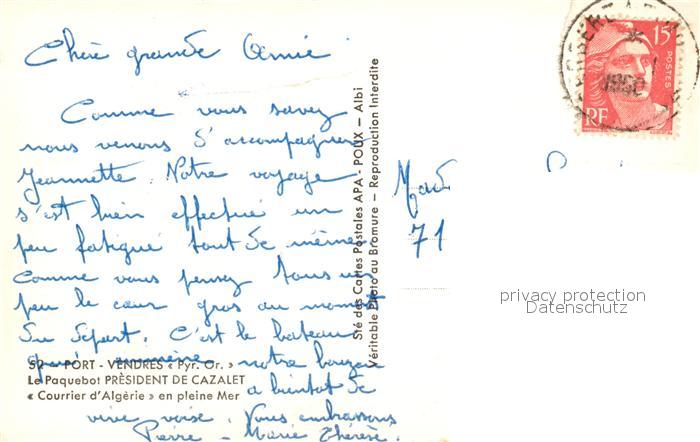 Chère grande Amie
Comme vous savez
nous venons d'accompagner
Jeannette. Notre voyage
s'est bien effectué un
peu fatigué tout de même
comme vous pensez tous un
peu le cœur gros au moment
du départ. C'est le bateau
qui emmène notre
52 - PORT - VENDRES « Pyr. Or. »
Le Paquebot PRÉSIDENT DE CAZALET
« Courrier d'Algérie » en pleine Mer
a bientôt de
vive voix. Vous embrassons
Pierre - Marie Thérèse.
Sté des Cartes Postales APA - POUX - Albi
Véritable Photo au Bromure - Reproduction Interdite
15F
POSTES
RF
1950
71
privacy protection
Datenschutz